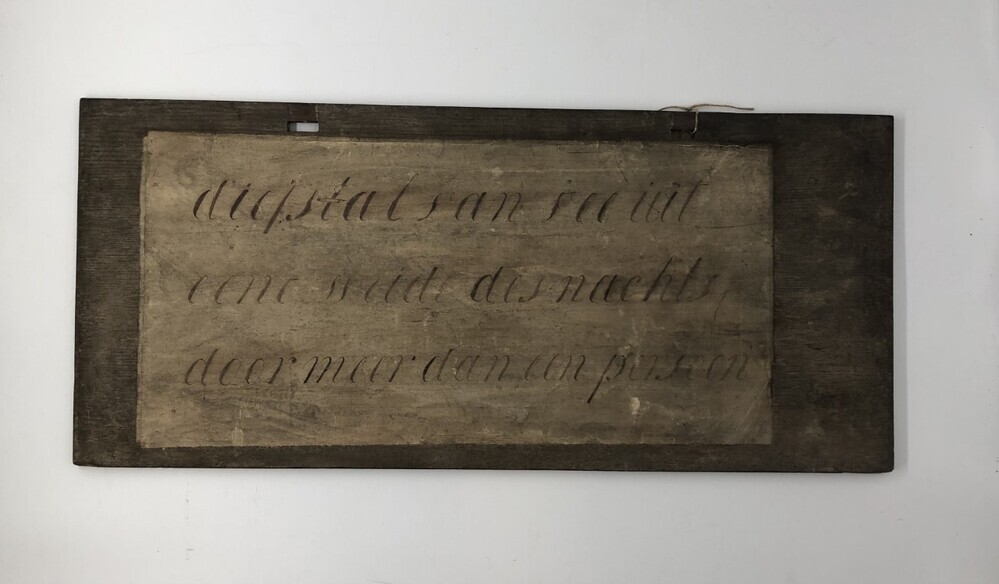 diefstal van vee uit
eene weide des nachts,
door meer dan een persoon